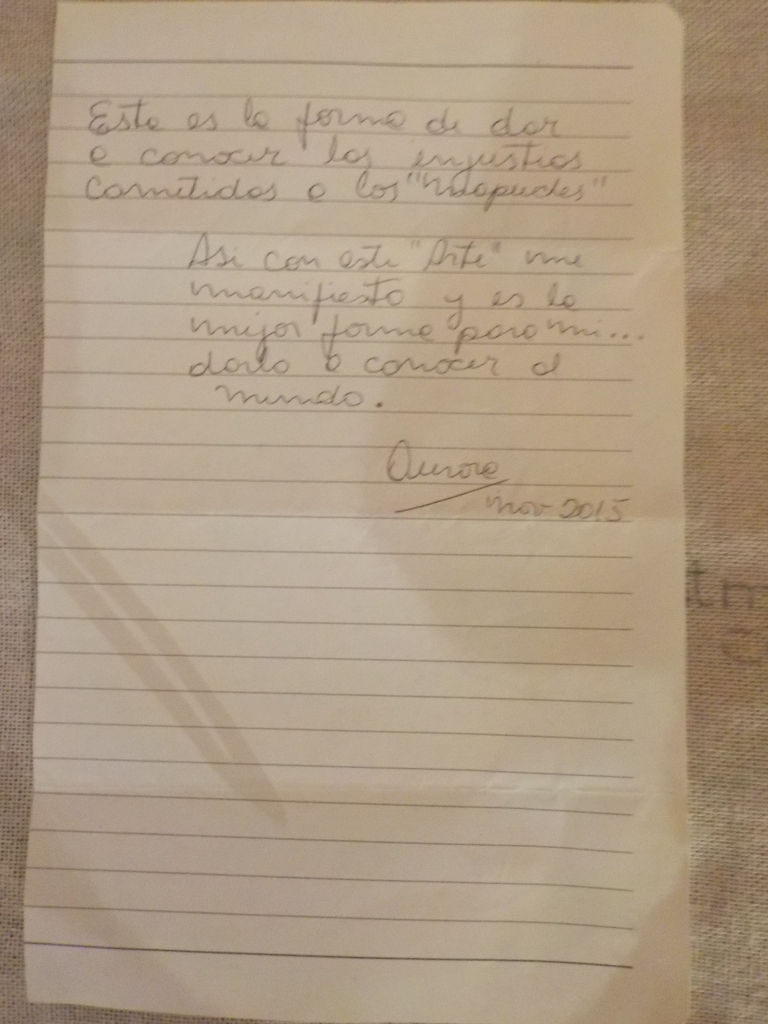 Esta es la forma de dar
a conocer las injusticias
cometidas a los "Mapuches"
Asi con este "Arte" me
manifiesto y es la
mejor forma para mi...
darlo a conocer al
mundo.
Aurora
nov 2015